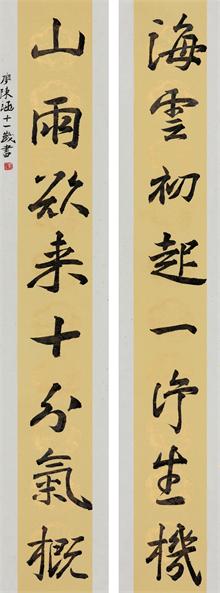 海雲初起一片生機
山雨欲来十分氣概
陳涵十一歲書